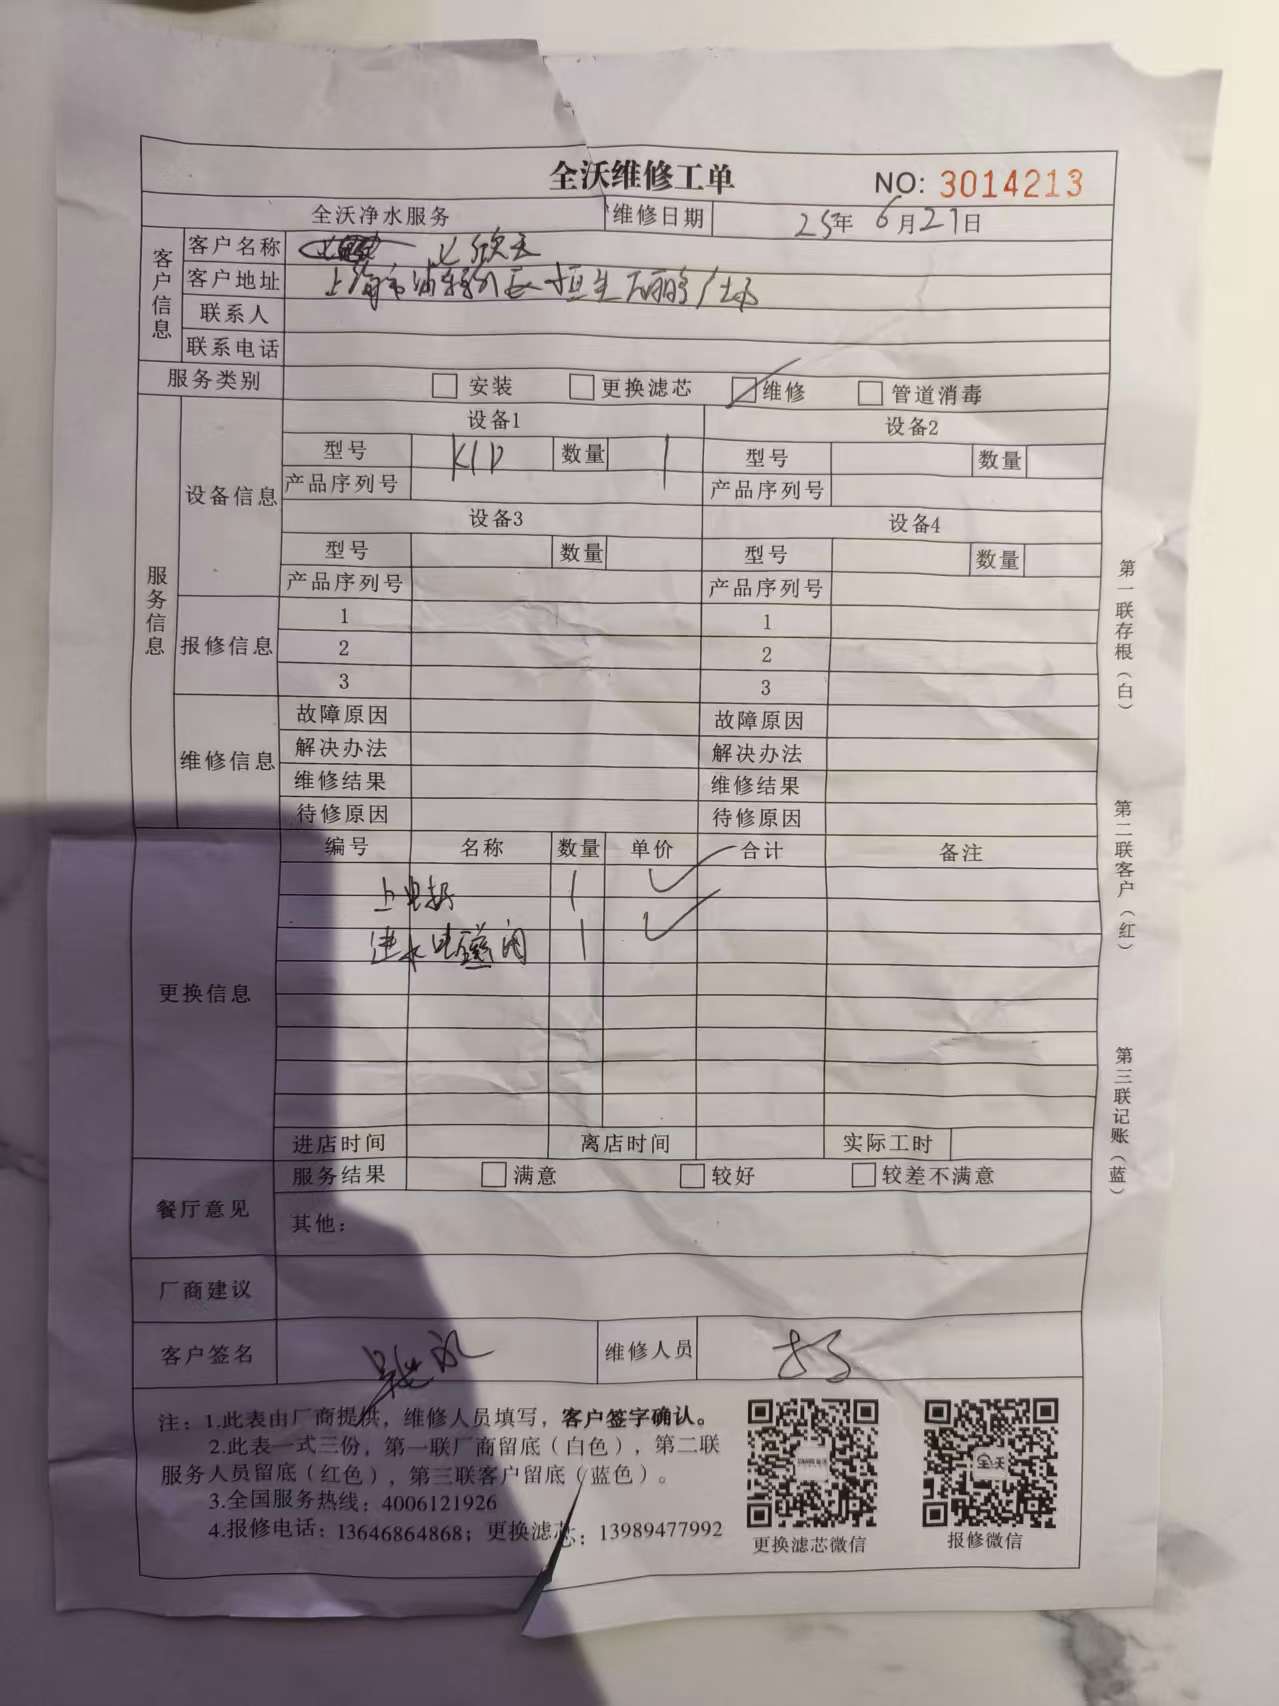 全沃维修工单 NO: 3014213
全沃净水服务 维修日期 25年 6月27日
客户信息
客户名称
客户地址 上海市浦东新区 恒生万鹂广场
联系人
联系电话
服务类别 安装 更换滤芯 维修 管道消毒
服务信息
设备信息
设备1 设备2
型号 数量 1 型号 数量
产品序列号 产品序列号
设备3 设备4
型号 数量 型号 数量
产品序列号 产品序列号
报修信息
1 1
2 2
3 3
维修信息
故障原因 故障原因
解决办法 解决办法
维修结果 维修结果
待修原因 待修原因
更换信息
编号 名称 数量 单价 合计 备注
1
进水电磁阀 1
进店时间 离店时间 实际工时
餐厅意见
服务结果 满意 较好 较差不满意
其他：
厂商建议
客户签名 维修人员
注：1.此表由厂商提供，维修人员填写，客户签字确认。
2.此表一式三份，第一联厂商留底（白色），第二联
服务人员留底（红色），第三联客户留底（蓝色）。
3.全国服务热线：4006121926
4.报修电话：13646864868；更换滤芯：13989477992
更换滤芯微信
全沃
报修微信
第一联存根（白）
第二联客户（红）
第三联记账（蓝）